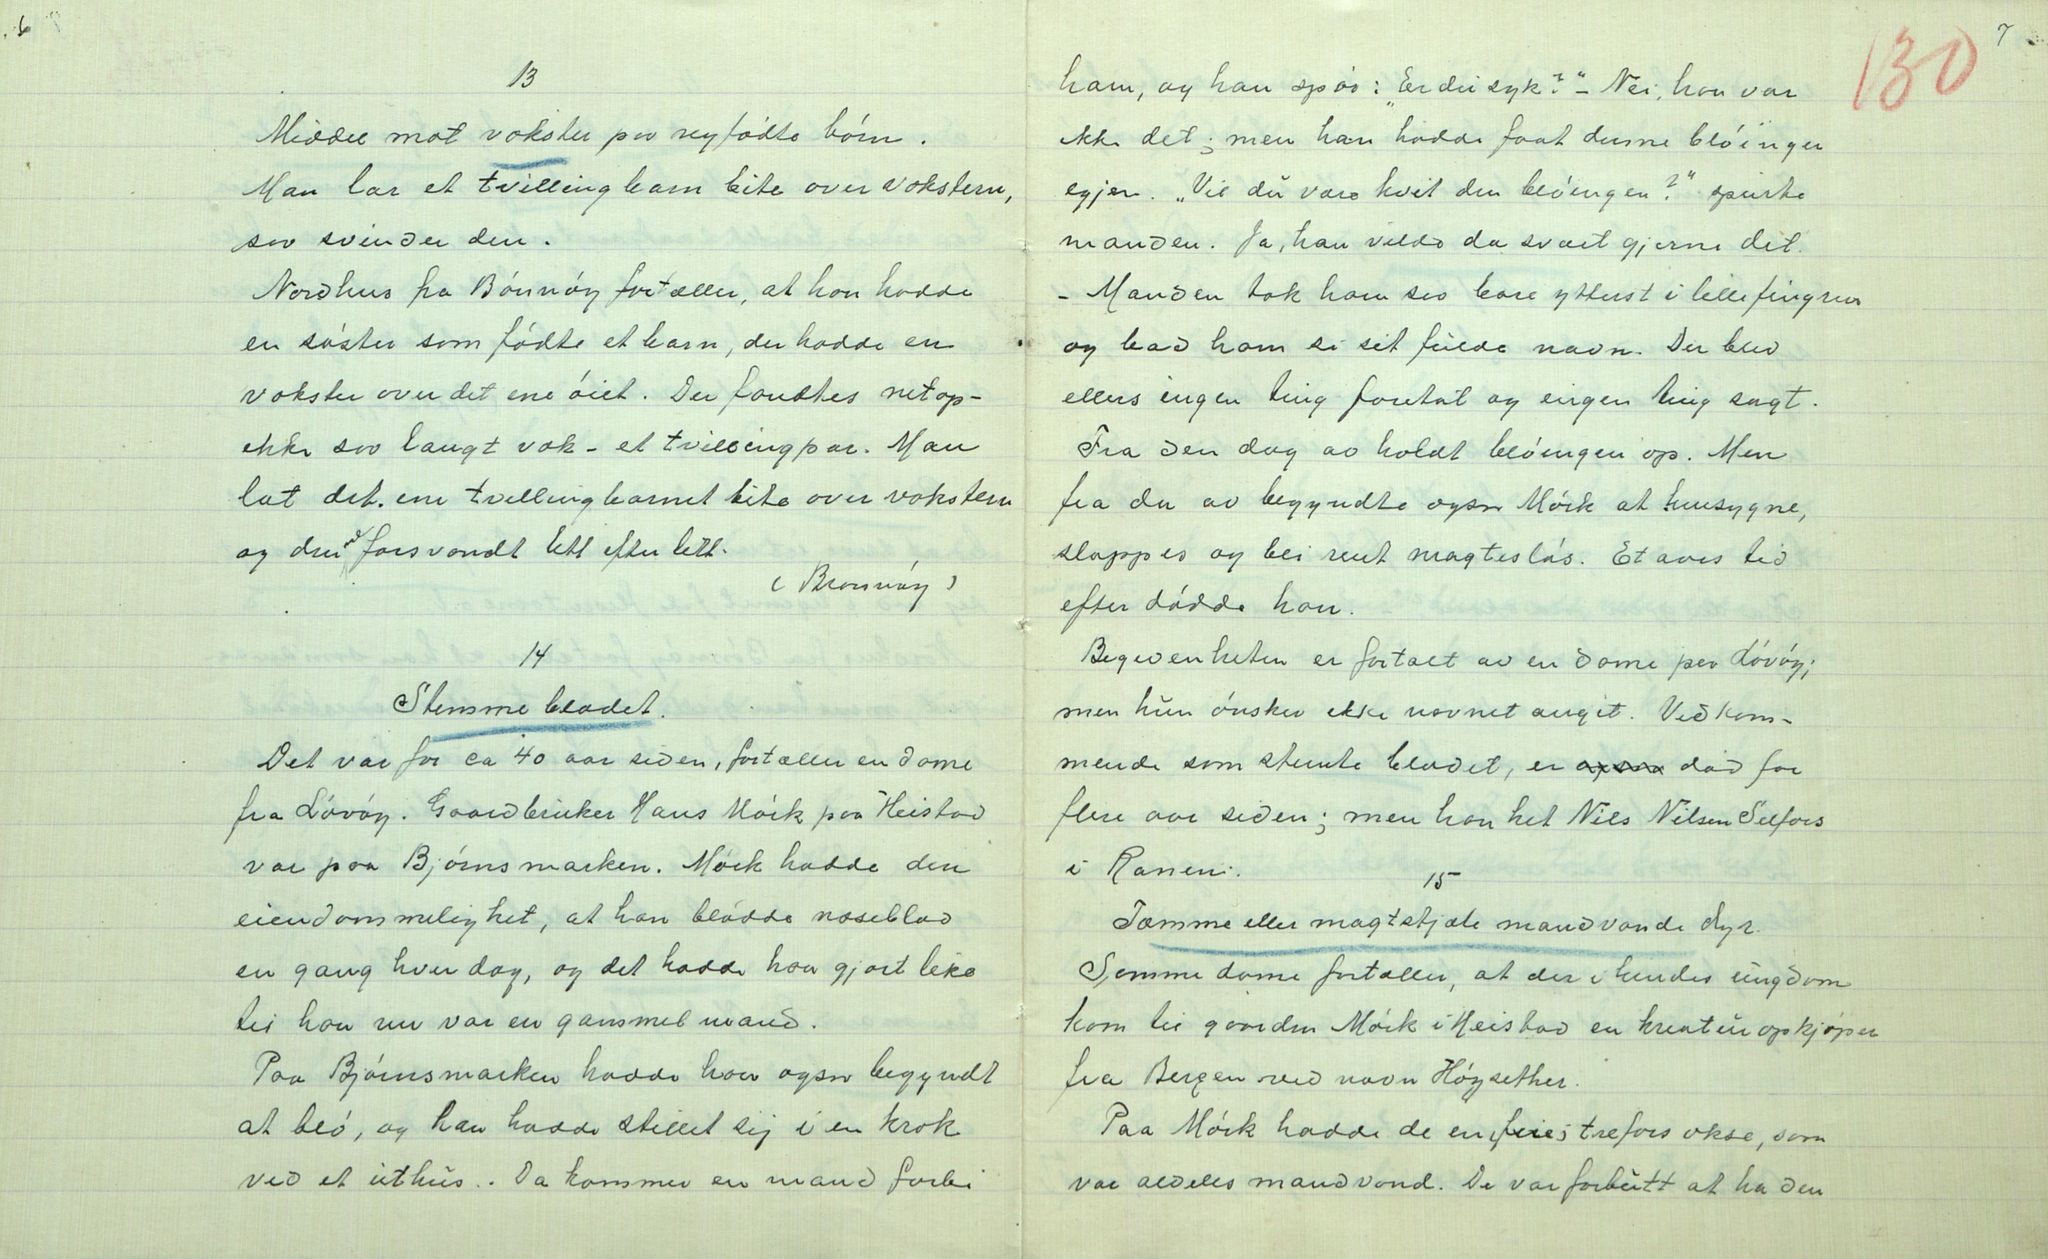 6
13
Middel mot vokster paa nyfödte börn.
Man lar et tvillingbarn bite over vokstern,
saa svinder den.
Nordhus fra Bönnöy fortæller, at han hadde
en söster som födte et barn, der hadde en
vokster over det ene öiet. Der fandtes netop -
ikke saa langt væk - et tvillingpar. Man
lot det ene tvillingbarnet bite over vokstern
og den forsvandt litt efter litt.
(Brönnöy)
14
Stemme blodet.
Det var for ca 40 aar siden, fortæller en dame
fra Lövöy. Gaardbruker Hans Mörk paa Heistad
var paa Björnsmarken. Mörk hadde den
eiendommelighet, at han blödde næseblod
en gang hver dag, og det hadde han gjort like
til han nu var en gammel mand.
Paa Björnsmarken hadde han ogsaa begyndt
at blö, og han hadde stillet sig i en krok
ved et uthus. Da kommer en mand forbi
7
130
ham, og han spör: "Er du syk?" - Nei, han var
ikke det; men han hadde faat denne blöinga
igjen. "Vil du være kvit den blöingen?" spurte
manden. Ja, han vilde da svært gjerne det.
- Manden tok ham saa bare ytterst i lillefingren
og bad ham si sit fulde navn. Der blev
ellers ingen ting foretat og ingen ting sagt.
Fra den dag av holdt blöingen op. Men
fra da av begyndte ogsaa Mörk at hensygne,
slappes og bli rent magteslös. Et aars tid
efter dödde han.
Begivenheten er fortalt av en dame paa Lövöy;
men hun önsker ikke navnet angit. Vedkom-
mende som stemte blodet, er död for
flere aar siden; men han het Nils Nilsen Selfors
i Ranen.
15
Tæmme eller magtstjæle mandvonde dyr.
Samme dame fortæller, at der i hendes ungdom
kom til gaarden Mörk i Heistad en kreaturopkjöper
fra Bergen ved navn Höysether.
Paa Mörk hadde de en trefors okse, som
var aldeles mandvond. De var forbutt at ha den